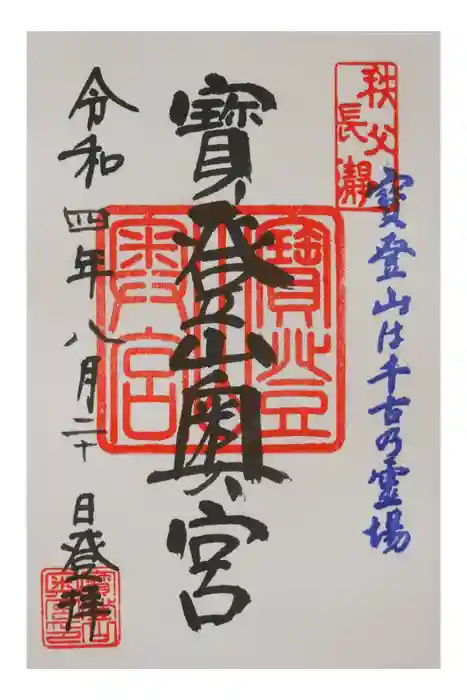 秩父
長瀞
寶登山は千古の霊場
寶登山奥宮
寶登
奥宮
令和四年八月二十日登拝